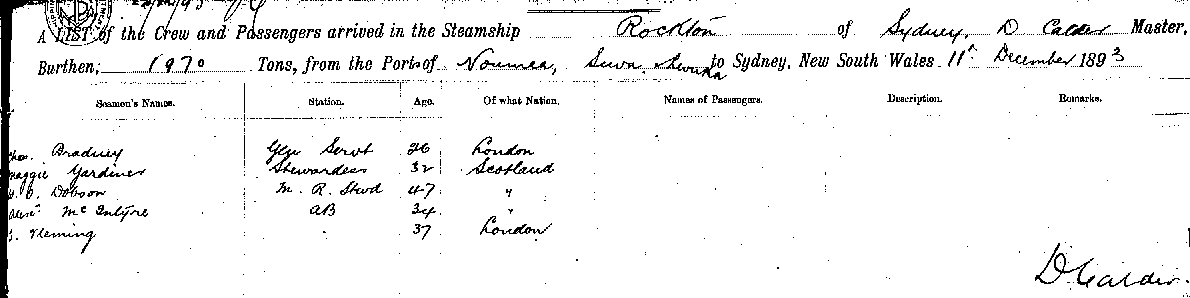 A LIST of the Crew and Passengers arrived in the Steamship Rockton of Sydney, D Calder Master,
Burthen, 1970 Tons, from the Port of Noumea, Suva, Levuka to Sydney, New South Wales 11th December 1893
Seamen's Names. Station. Age. Of what Nation. Names of Passengers. Description. Remarks.
Bradney Servt 26 London
Maggie Gardiner Stewardess 32 Scotland
Dobson M. R. Stwd 47 "
Alexr McIntyre AB 34 "
Fleming " 37 London
D Calder.